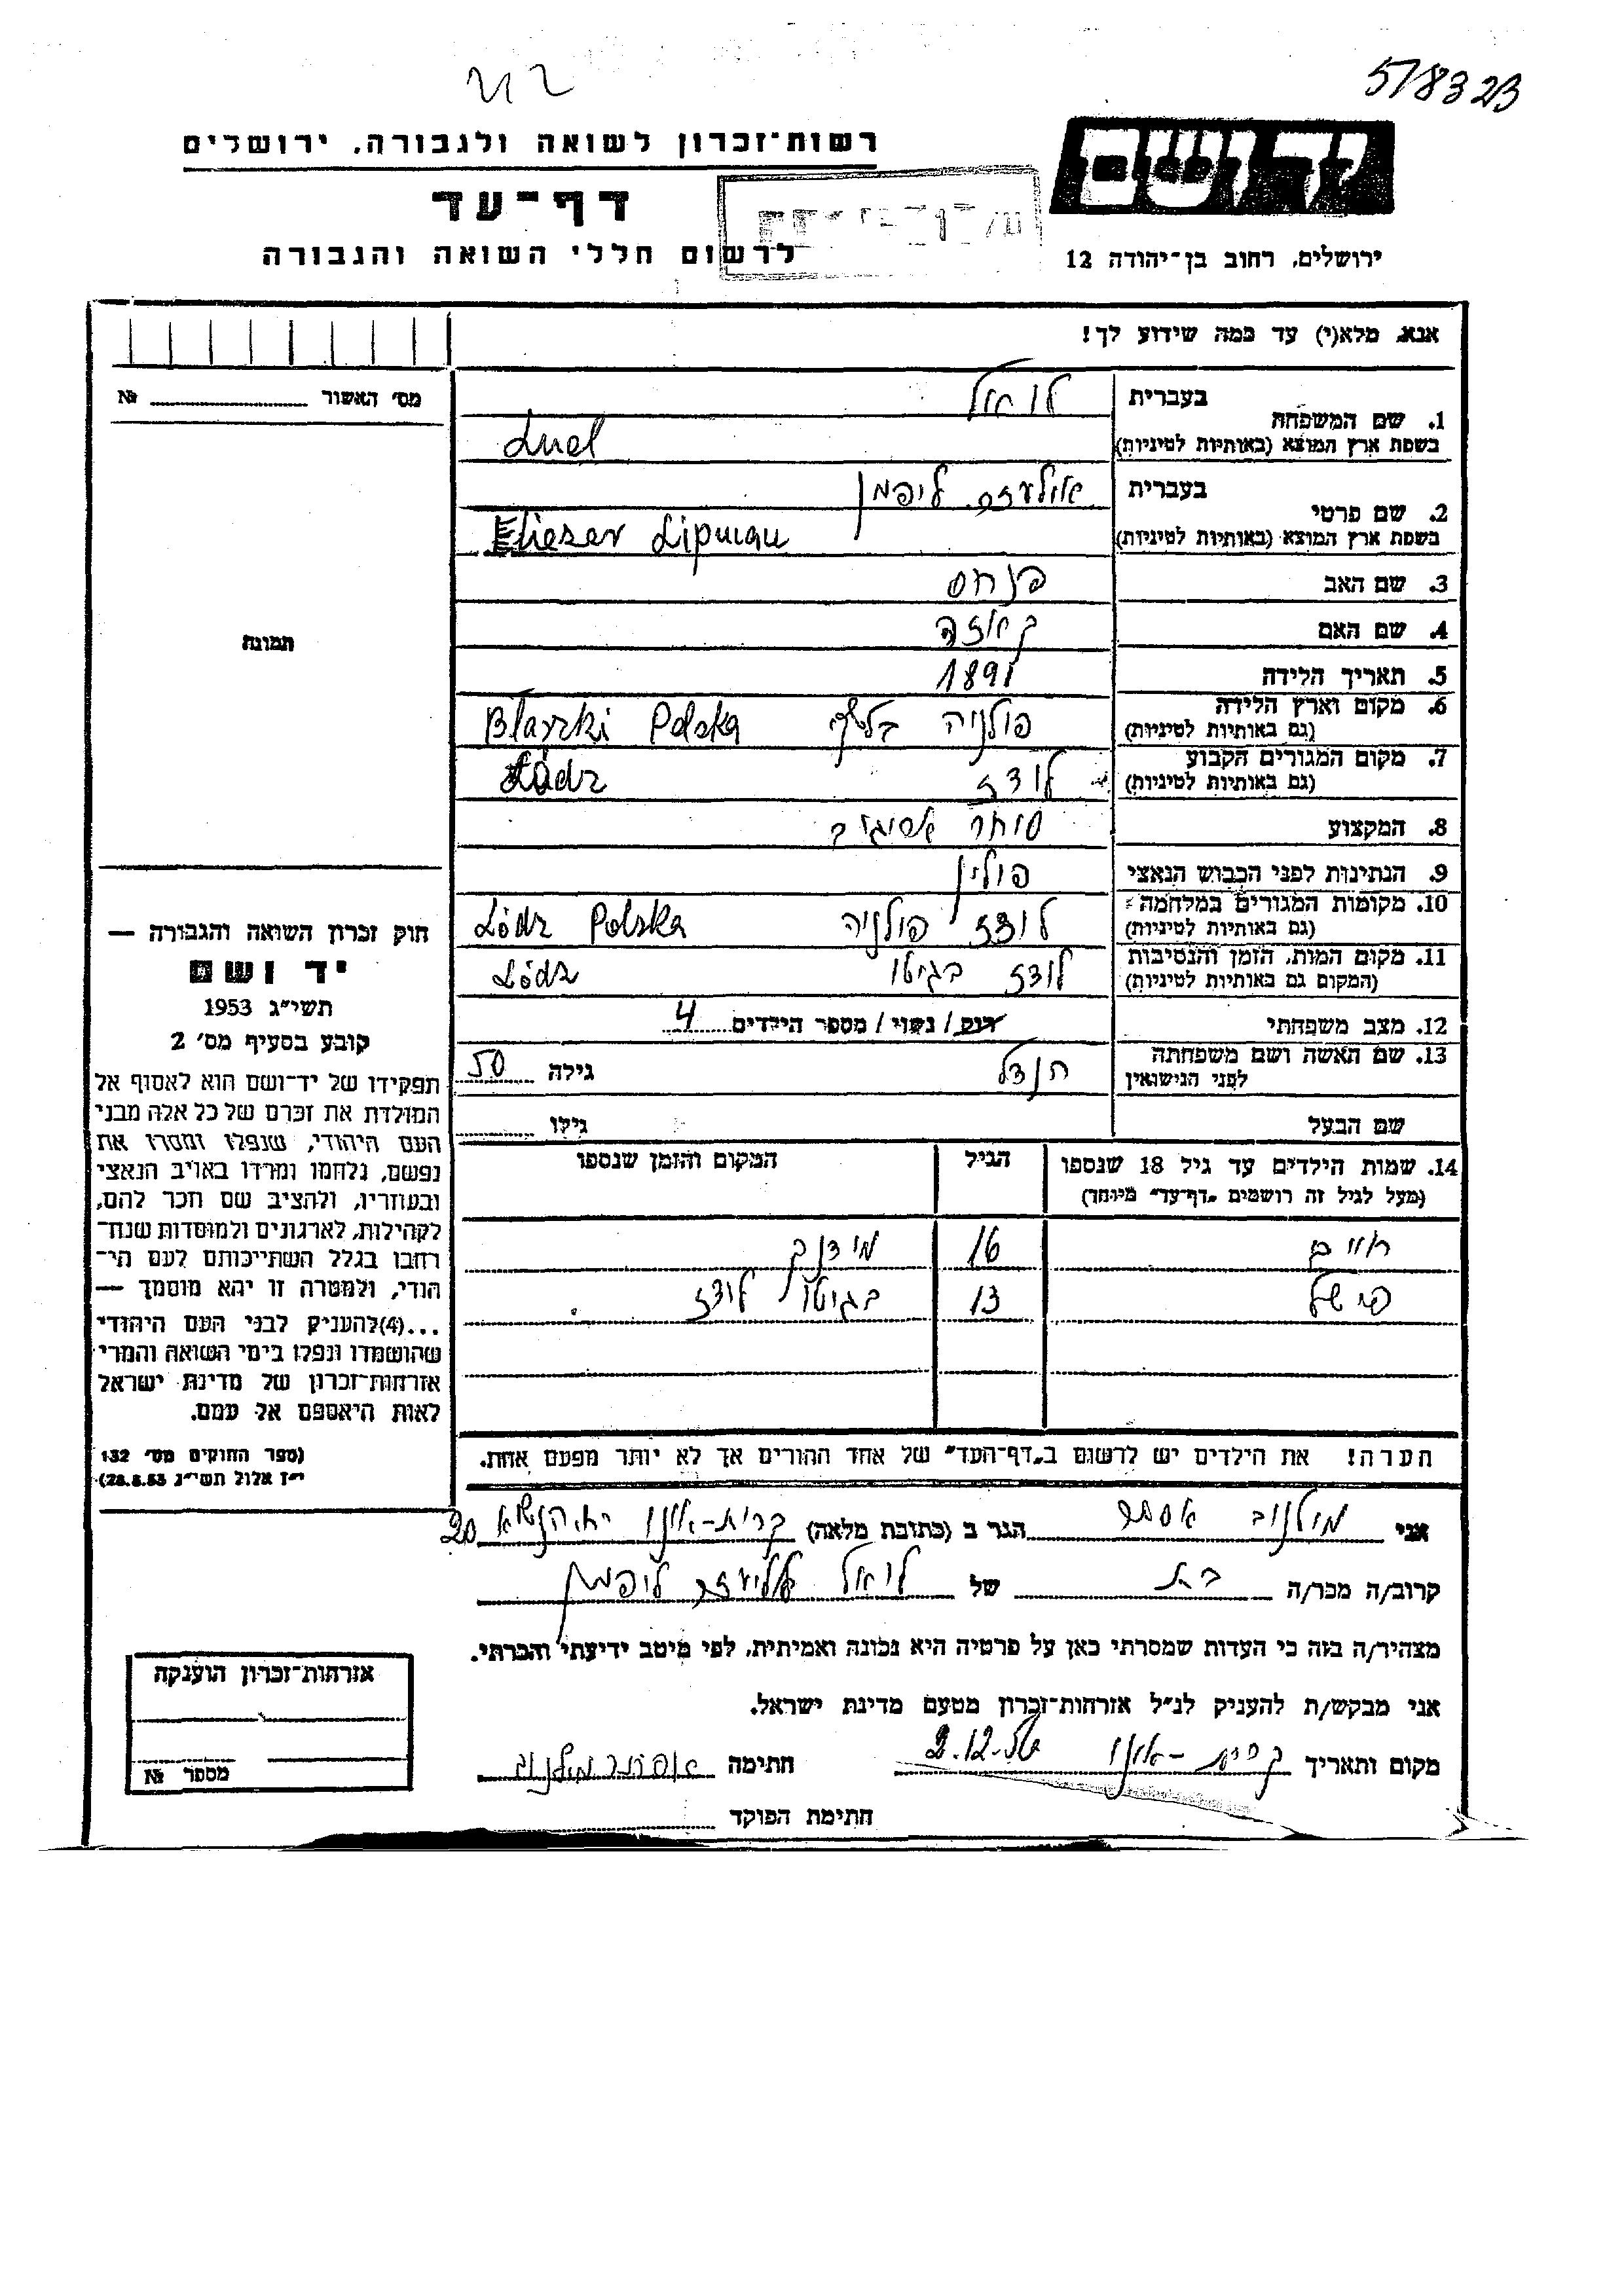 57832B
רשות־זכרון לשואה ולגבורה, ירושלים
יד ושם
דף־עד
לרשום חללי השואה והגבורה
ירושלים, רחוב בן־יהודה 12
אנא, מלא(י) עד כמה שידוע לך!
מס׳ האשור № 
1. שם המשפחה בעברית לואל
בשפת ארץ המוצא (באותיות לטיניות) Luel
2. שם פרטי בעברית אליעזר ליפמן
בשפת ארץ המוצא (באותיות לטיניות) Elieser Lipman
3. שם האב פנחס
4. שם האם
5. תאריך הלידה 1891
6. מקום וארץ הלידה (גם באותיות לטיניות) פולניה Polska
7. מקום המגורים הקבוע (גם באותיות לטיניות) לודז Łódz
8. המקצוע סוחר
9. הנתינות לפני הכבוש הנאצי פולין
10. מקומות המגורים במלחמה (גם באותיות לטיניות) לודז פולניה Lódz Polska
11. מקום המות, הזמן והנסיבות (המקום גם באותיות לטיניות) לודז בגיטו Lódz
12. מצב משפחתי רווק / נשוי / מספר הילדים 4
13. שם האשה ושם משפחתה לפני הנישואין הנדל גילה 50
שם הבעל גילו
14. שמות הילדים עד גיל 18 שנספו הגיל המקום והזמן שנספו
(מעל לגיל זה רושמים „דף־עד״ מיוחד)
חיים 16 מידנק
פישל 13 בגיטו לודז
הערה! את הילדים יש לרשום ב„דף־העד״ של אחד ההורים אך לא יותר מפעם אחת.
תמונה
חוק זכרון השואה והגבורה —
יד ושם
תשי״ג 1953
קובע בסעיף מס׳ 2
תפקידו של יד־ושם הוא לאסוף אל
המולדת את זכרם של כל אלה מבני
העם היהודי, שנפלו ומסרו את
נפשם, נלחמו ומרדו באויב הנאצי
ובעוזריו, ולהציב שם וזכר להם,
לקהילות, לארגונים ולמוסדות שנח־
רבו בגלל השתייכותם לעם הי־
הודי, ולמטרה זו יהא מוסמך —
...(4) להעניק לבני העם היהודי
שהושמדו ונפלו בימי השואה והמרי
אזרחות־זכרון של מדינת ישראל
לאות היאספם אל עמם.
(ספר החוקים מס׳ 132
י״ז אלול תשי״ג 28.8.53)
אני מילנוב אסתר הגר ב (כתובת מלאה) קרית-אונו רח הנשיא 20
קרוב/ה מכר/ה בת של לואל אליעזר ליפמן
מצהיר/ה בזה כי העדות שמסרתי כאן על פרטיה היא נכונה ואמיתית, לפי מיטב ידיעתי והכרתי.
אני מבקש/ת להעניק לנ״ל אזרחות־זכרון מטעם מדינת ישראל.
מקום ותאריך קרית-אונו 2.12.56 חתימה אסתר מילנוב
חתימת הפוקד
אזרחות־זכרון הוענקה
מספר №